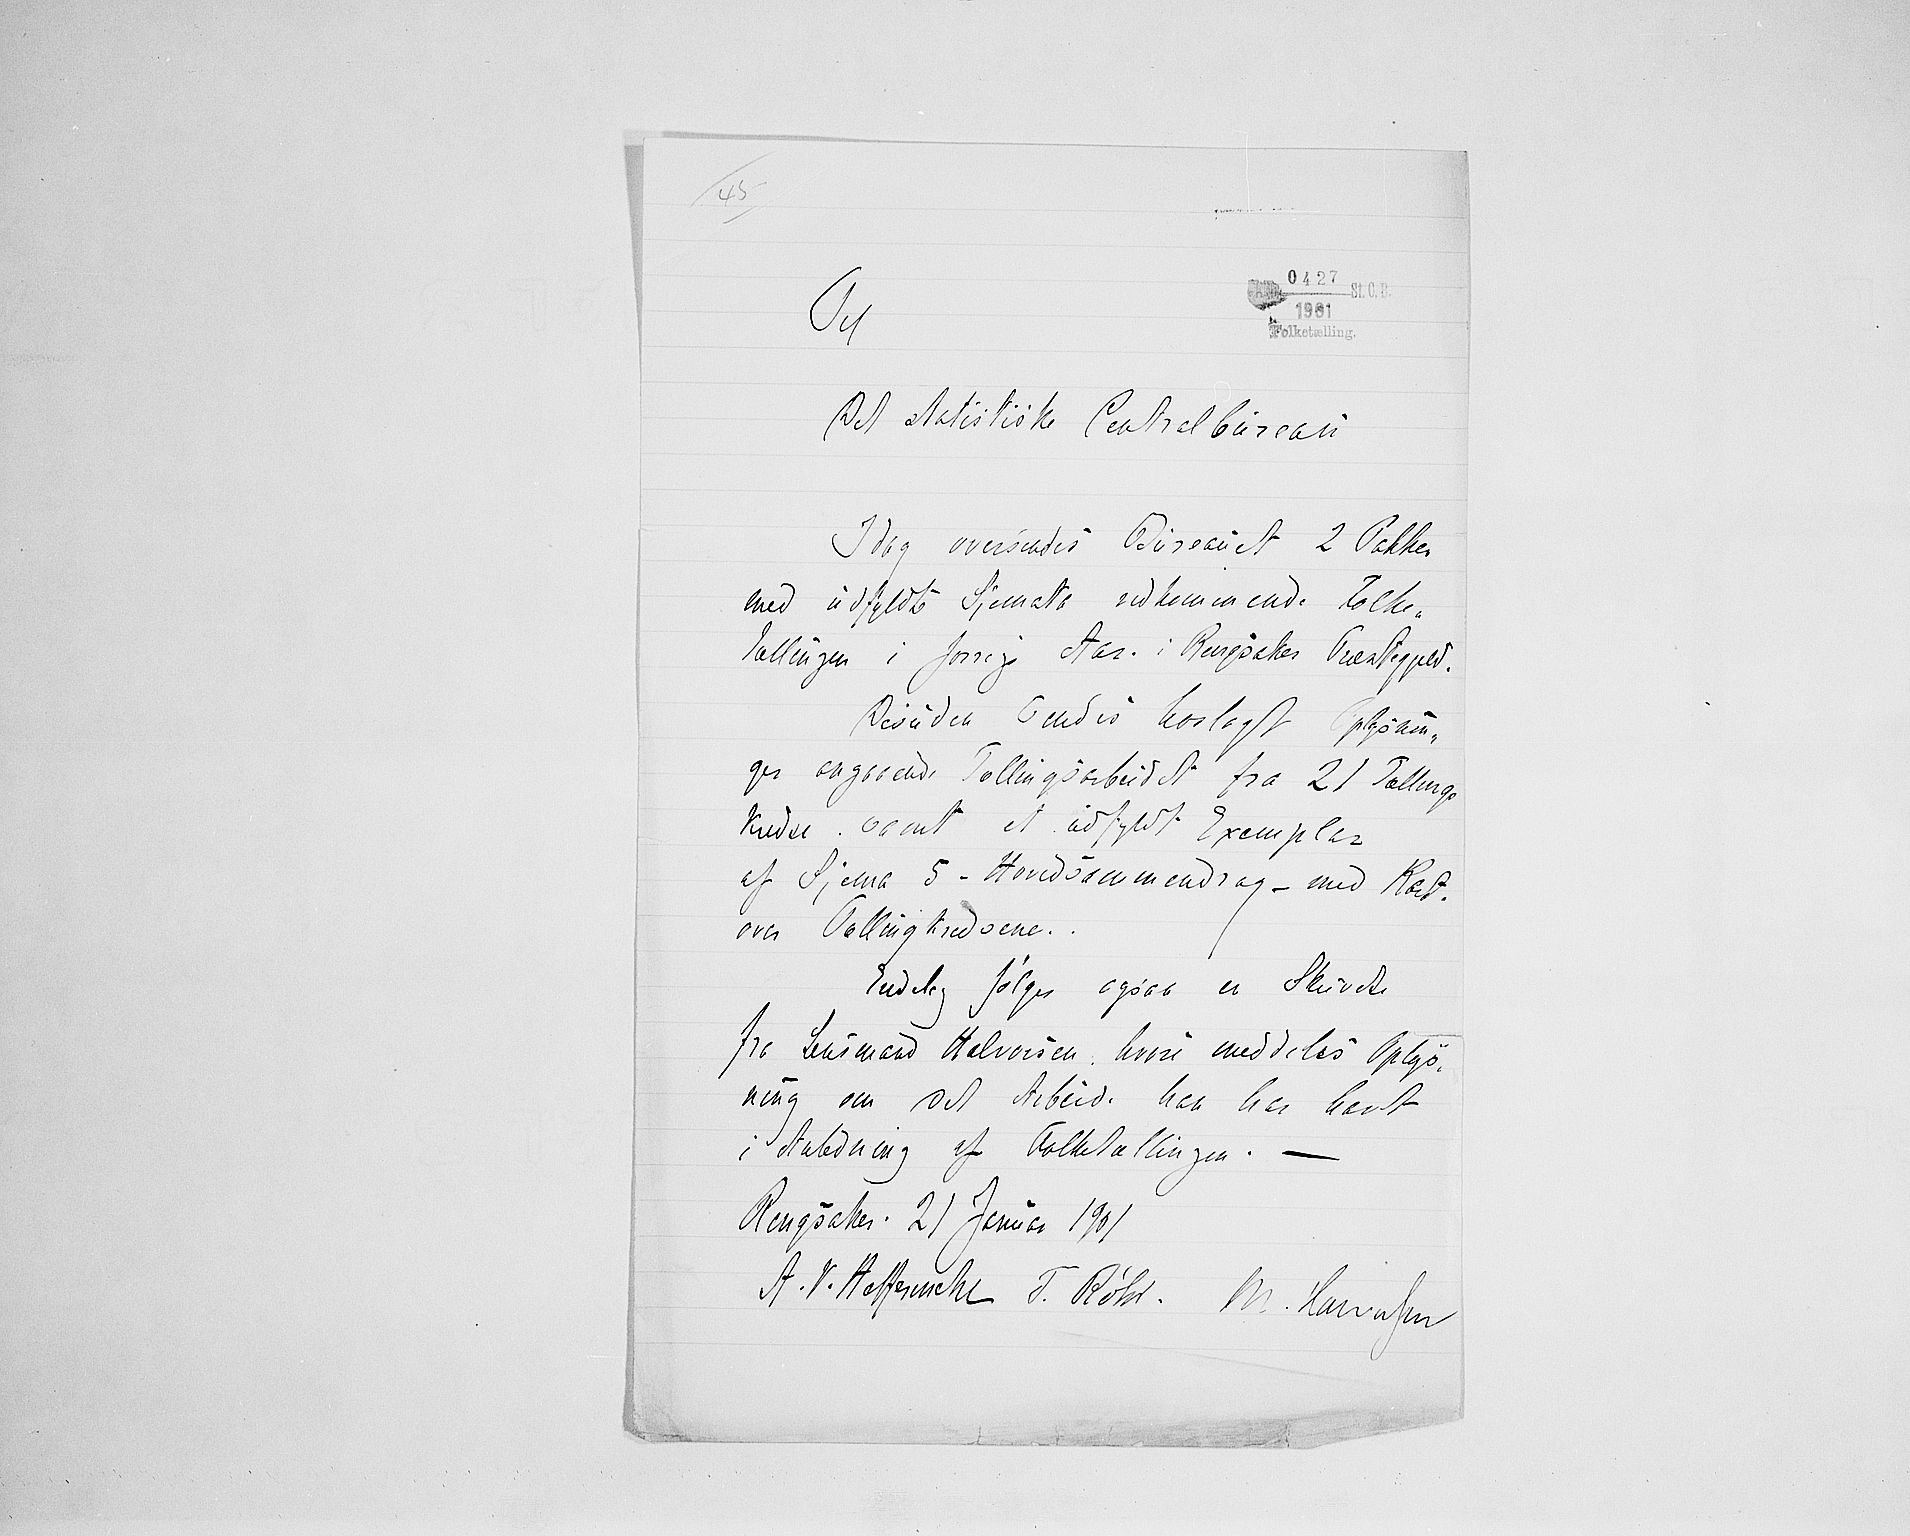 45
0427 St. C. B.
1901
Folketælling.
Til
Det statistiske Centralbureau
Idag oversendes Bureauet 2 Pakker
med udfyldte Sjemata vedkommende Folke„
tællingen i forrige Aar. i Ringsaker Præstegjeld.
Desuden sendes hoslagt Oplysnin„
ger angaaende Tællingsarbeidet fra 21 Tællings
kredse. samt et udfyldt Exemplar
af Sjema 5 - Hovedsammendrag - med Kart.
over Tællingkredsene..
Endelig følger ogsaa en Skrivelse
fra Lensmand Halvorsen. hvori meddeles Oplys„
ning om det Arbeide han har havt
i Anledning af Folketællingen. —
Ringsaker. 21 Januar 1901
A. V. T. Röhr. M.